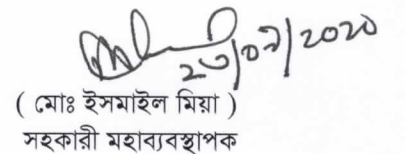 ২৩/০৭/2020
( মোঃ ইসমাইল মিয়া )
সহকারী মহাব্যবস্থাপক